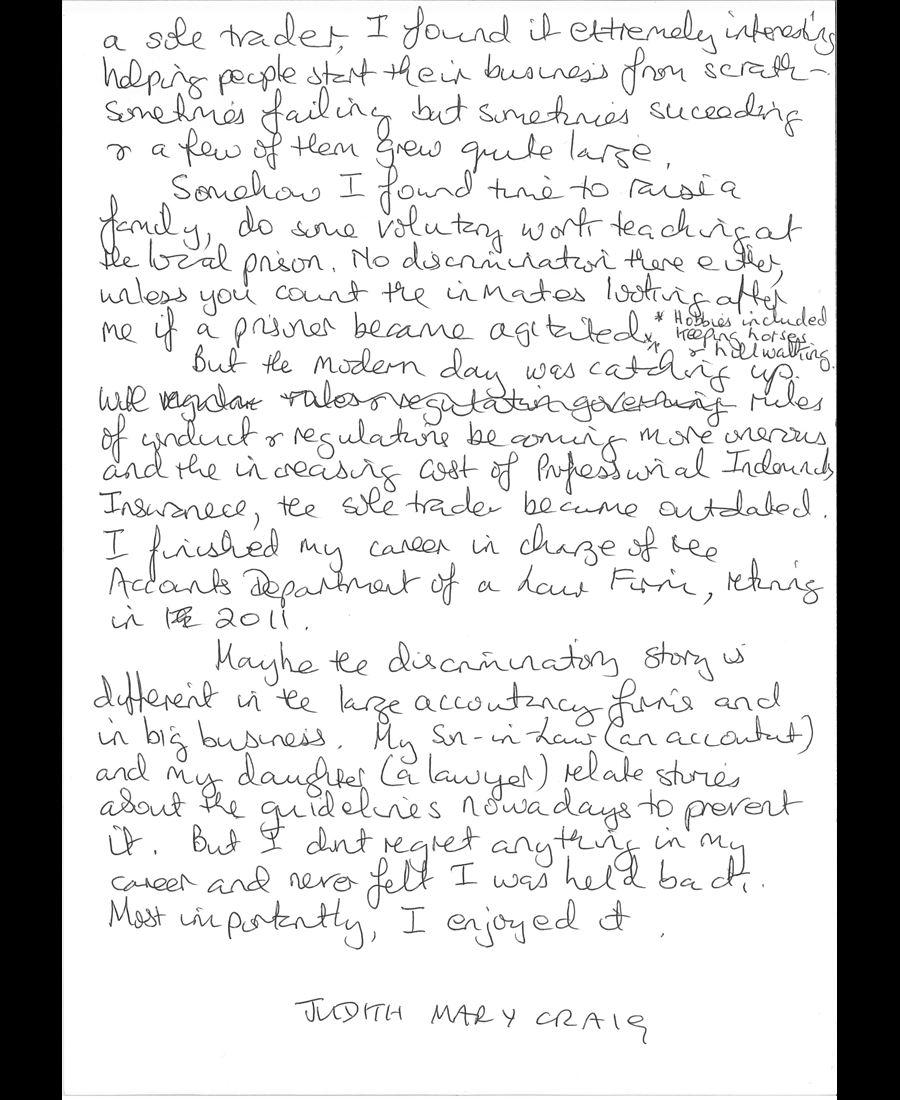 a sole trader, I found it extremely interesting
helping people start their business from scrath -
sometimes failing but sometimes suceeding
& a few of them grew quite large.
Somehow I found time to raise a
family, do some volutary work teaching at
the local prison. No discrimination there either,
unless you count the inmates looking after
me if a prisoner became agitated. *
* Hobbies included
keeping horses
& hillwalking.
But the modern day was catching up.
With regular rules & regulation governing rules
of conduct & regulations becoming more onerous
and the increasing cost of Professional Indemnity
Insurance, the sole trader became outdated.
I finished my career in charge of the
Accounts Department of a Law Firm, retiring
in 2011.
Maybe the discriminatory story is
different in the large accountancy firms and
in big business. My Son-in-Law (an accountant)
and my daughter (a lawyer) relate stories
about the guidelines nowadays to prevent
it. But I dont regret anything in my
career and never felt I was held back.
Most importantly, I enjoyed it.
JUDITH MARY CRAIG